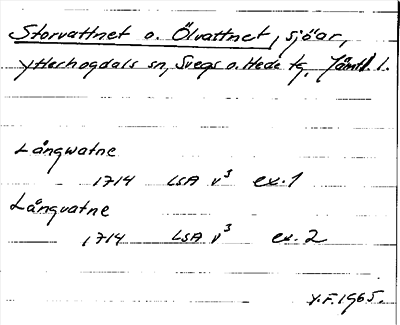 Storvattnet o. Ölvattnet, sjöar,
Ytterhogdals sn, Svegs o. Hede tg, Jämtl. l.
Långwatne
1714 LSA V³ ex. 1
Långvatne
1714 LSA V³ ex. 2
Y.F. 1965.